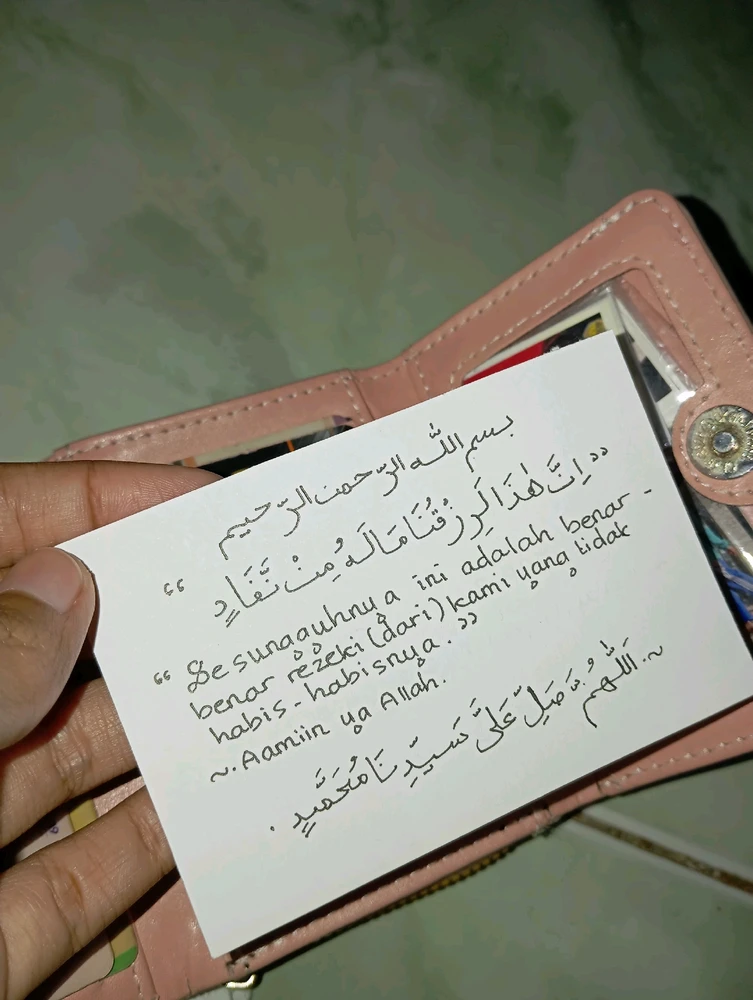 بسم اللّٰه الرّحمن الرّحيم
”اِنَّ هٰذَا لَرِزْقُنَا مَا لَهٗ مِنْ نَّفَادٍ“
“Sesungguhnya ini adalah benar-
benar rezeki (dari) kami yang tidak
habis-habisnya.”
~. Aamiin ya Allah.
~. اَللّٰهُمَّ صَلِّ عَلَى سَيِّدِنَا مُحَمَّدٍ .